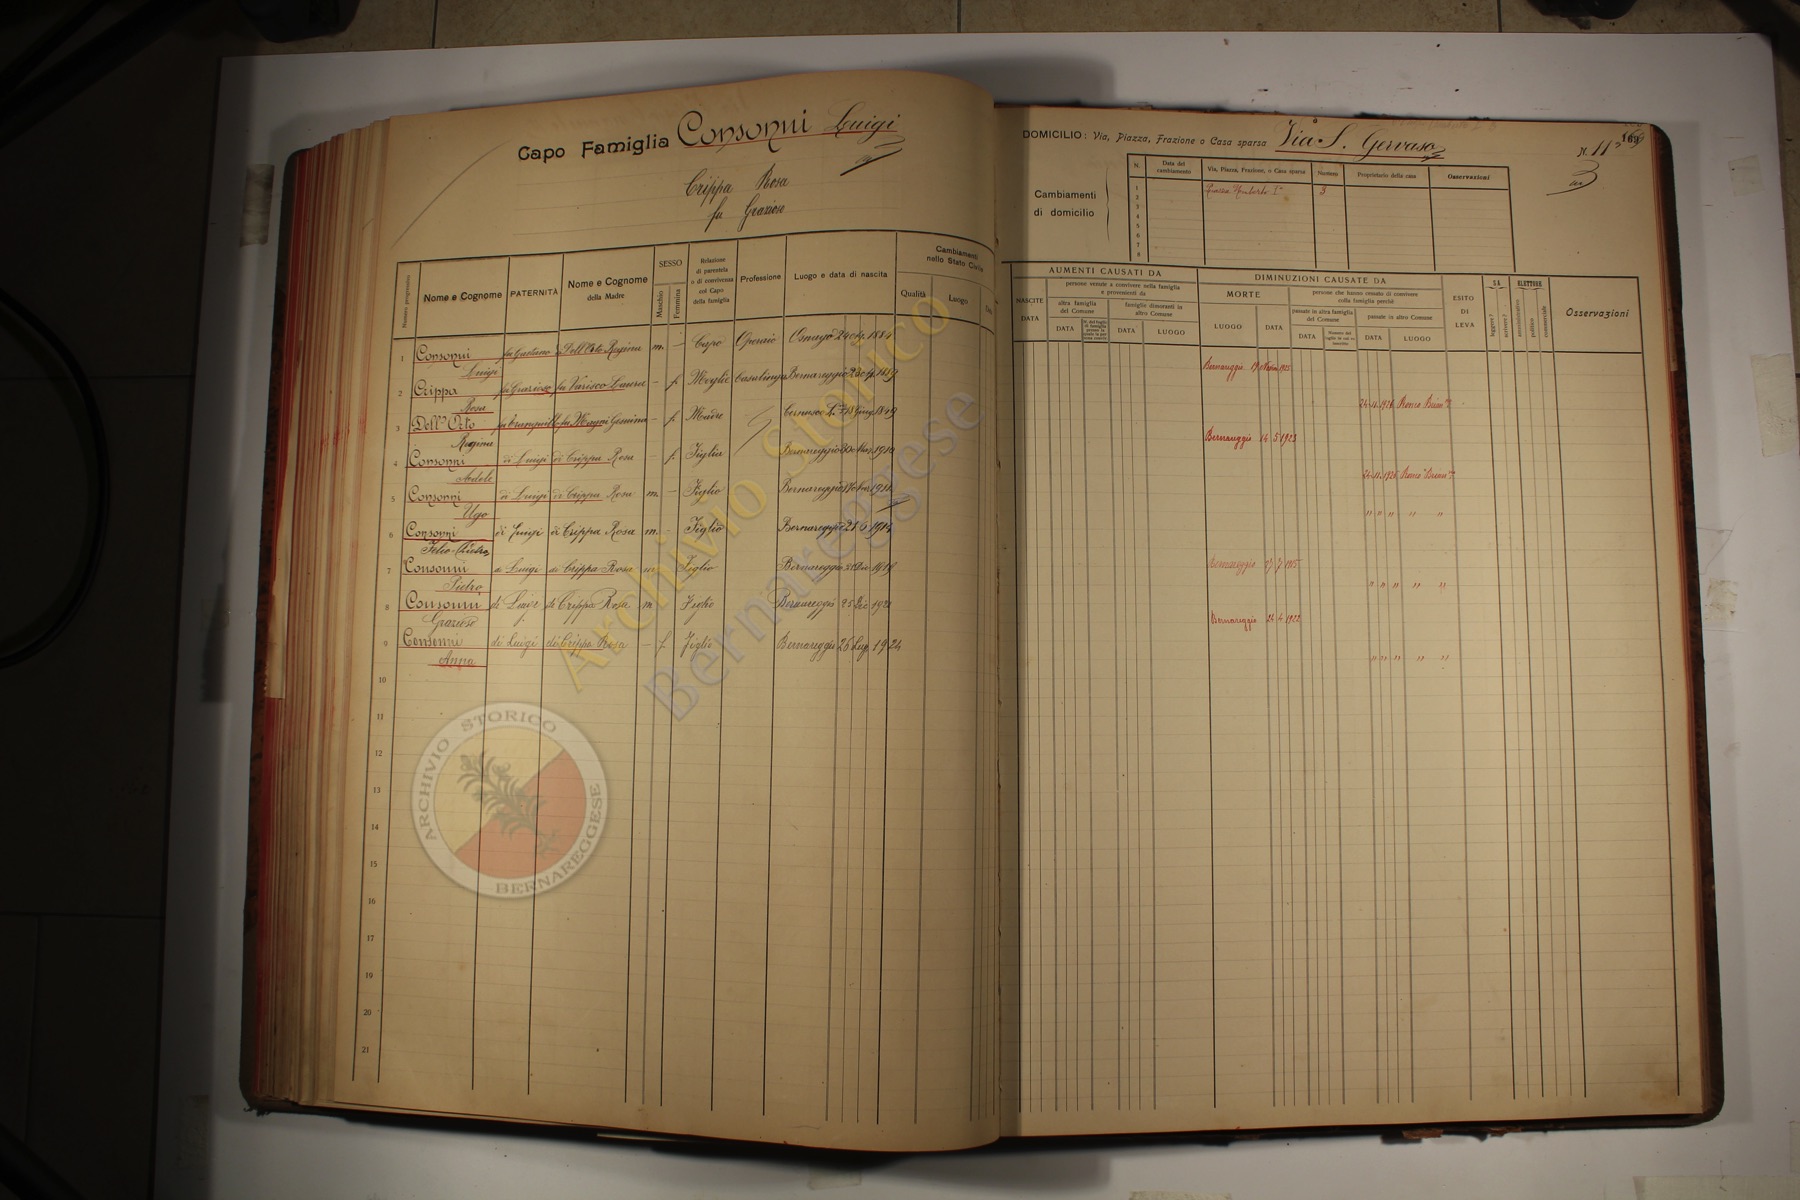 Capo Famiglia Consonni Luigi
Crippa Rosa
fu Grazioso
Numero progressivo
Nome e Cognome
PATERNITÀ
Nome e Cognome
della Madre
SESSO
Maschio
Femmina
Relazione
di parentela
o di convivenza
col Capo
della famiglia
Professione
Luogo e data di nascita
Cambiamenti
nello Stato Civile
Qualità
Luogo
1 Consonni fu Gaetano Dell'Orto Regina m. — Capo Operaio Osnago 24 1884
Luigi
2 Crippa fu Grazioso fu Varisco Laura — f. Moglie Casalinga Bernareggio 1889
Rosa
3 Dell'Orto fu Magni — f. Madre Cernusco L. 1849
Regina
4 Consonni di Luigi di Crippa Rosa — f. Figlia Bernareggio 30
Adele
5 Consonni di Luigi di Crippa Rosa m. — Figlio Bernareggio
Ugo
6 Consonni di Luigi di Crippa Rosa m. - Figlio Bernareggio 21.6.1914
7 Consonni di Luigi di Crippa Rosa m Figlio Bernareggio
Pietro
8 Consonni di Luigi di Crippa Rosa m Figlio Bernareggio 25 Dic
Grazioso
9 Consonni di Luigi di Crippa Rosa — f. Figlio Bernareggio 26 Lug. 1924
Anna
10
11
12
13
14
15
16
17
18
19
20
21
DOMICILIO: Via, Piazza, Frazione o Casa sparsa Via S. Gervaso
N. 11
169
Cambiamenti
di domicilio
N.
Data del
cambiamento
Via, Piazza, Frazione, o Casa sparsa
Numero
Proprietario della casa
Osservazioni
1 Piazza Umberto I° 3
2
3
4
5
6
7
8
NASCITE
DATA
AUMENTI CAUSATI DA
persone venute a convivere nella famiglia
e provenienti da
altra famiglia
del Comune
DATA
famiglie dimoranti in
altro Comune
DATA
LUOGO
DIMINUZIONI CAUSATE DA
MORTE
LUOGO
DATA
persone che hanno cessato di convivere
colla famiglia perchè
passate in altra famiglia
del Comune
DATA
passate in altro Comune
DATA
LUOGO
ESITO
DI
LEVA
SA
leggere?
scrivere?
ELETTORE
amministrativo
politico
commerciale
Osservazioni
Bernareggio 1925
24-11-1926 Ronco
Bernareggio 14 5 1923
24-11-1926 Ronco
" " " " "
Bernareggio 17 7 1915
" " " "
Bernareggio 24 4 1922
" " " " "
Archivio Storico
Bernareggese
ARCHIVIO STORICO
BERNAREGGESE